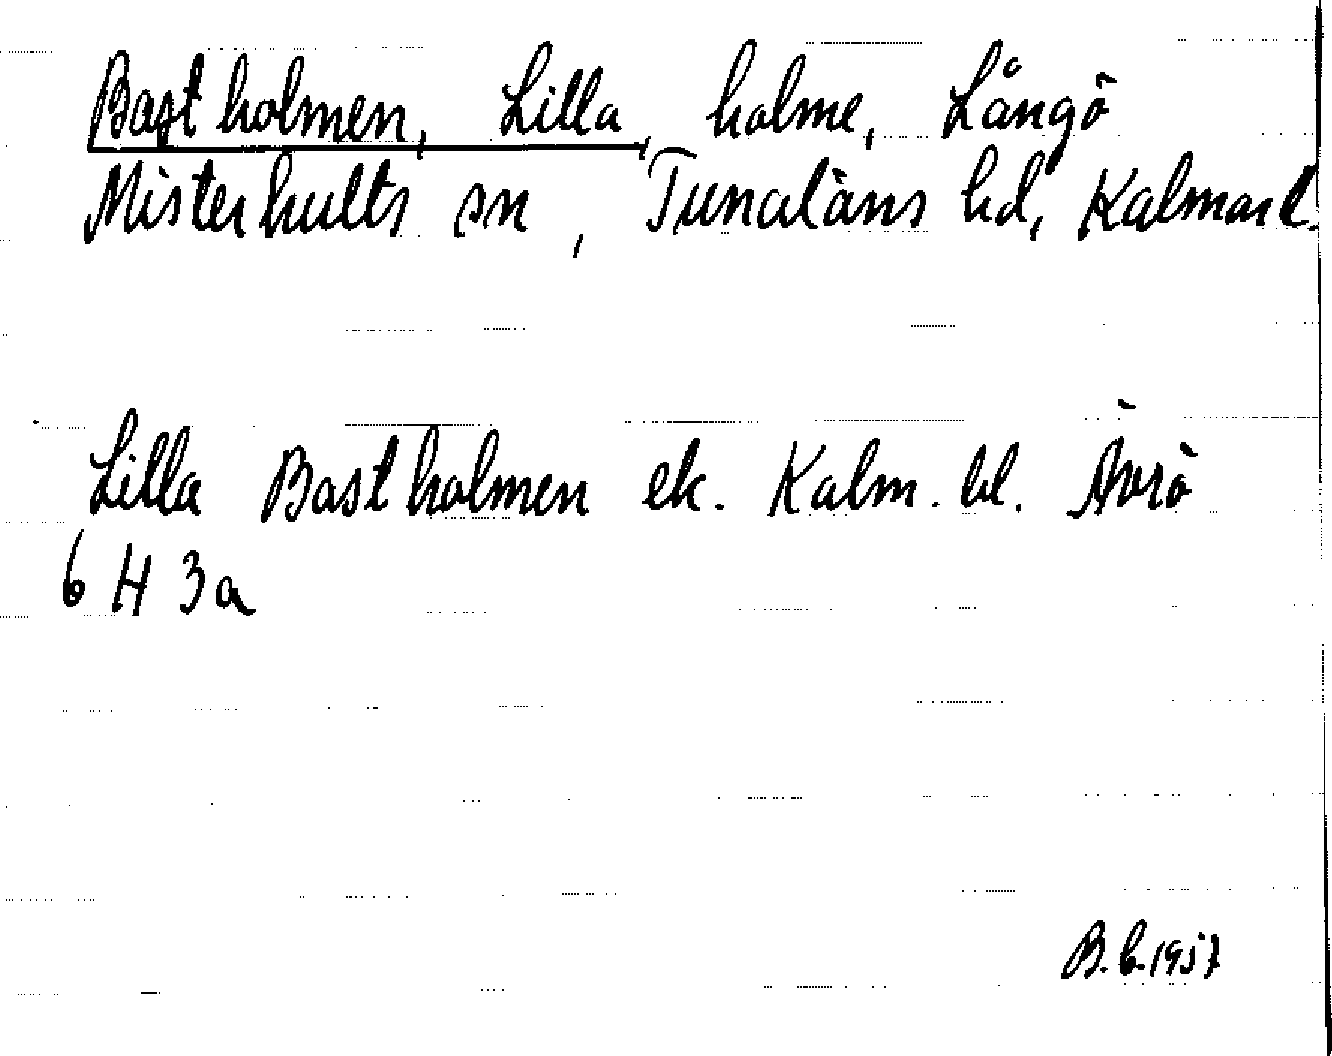 Bastholmen, Lilla, holme, Långö
Misterhults sn, Tunaläns hd, Kalmar l.
Lilla Bastholmen ek. Kalm. bl. Ävrö
6 H 3a
B.b.1957